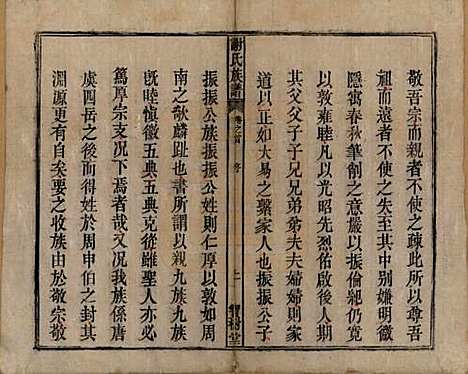 敬吾宗而親者不使之疎此所以尊吾
祖而遠者不使之失至其中別嫌明微
隱寓春秋筆削之意嚴以振偷剜仍寬
以敦雍睦凡以光昭先烈佑啟後人期
其父父子子兄兄弟弟夫夫婦婦則家
道以正亦大易之繫家人也振振公子
謝氏族譜
卷之首
序
上
寶樹堂
振振公族振振公姓則仁厚以敦如周
南之歌麟趾也書所謂以親九族九族
既睦慎徽五典五典克從雖聖人亦必
篤厚宗支況下焉者哉又況我族係唐
虞四岳之後而得姓於周申伯之封其
淵源更自有矣要之收族由於敬宗敬